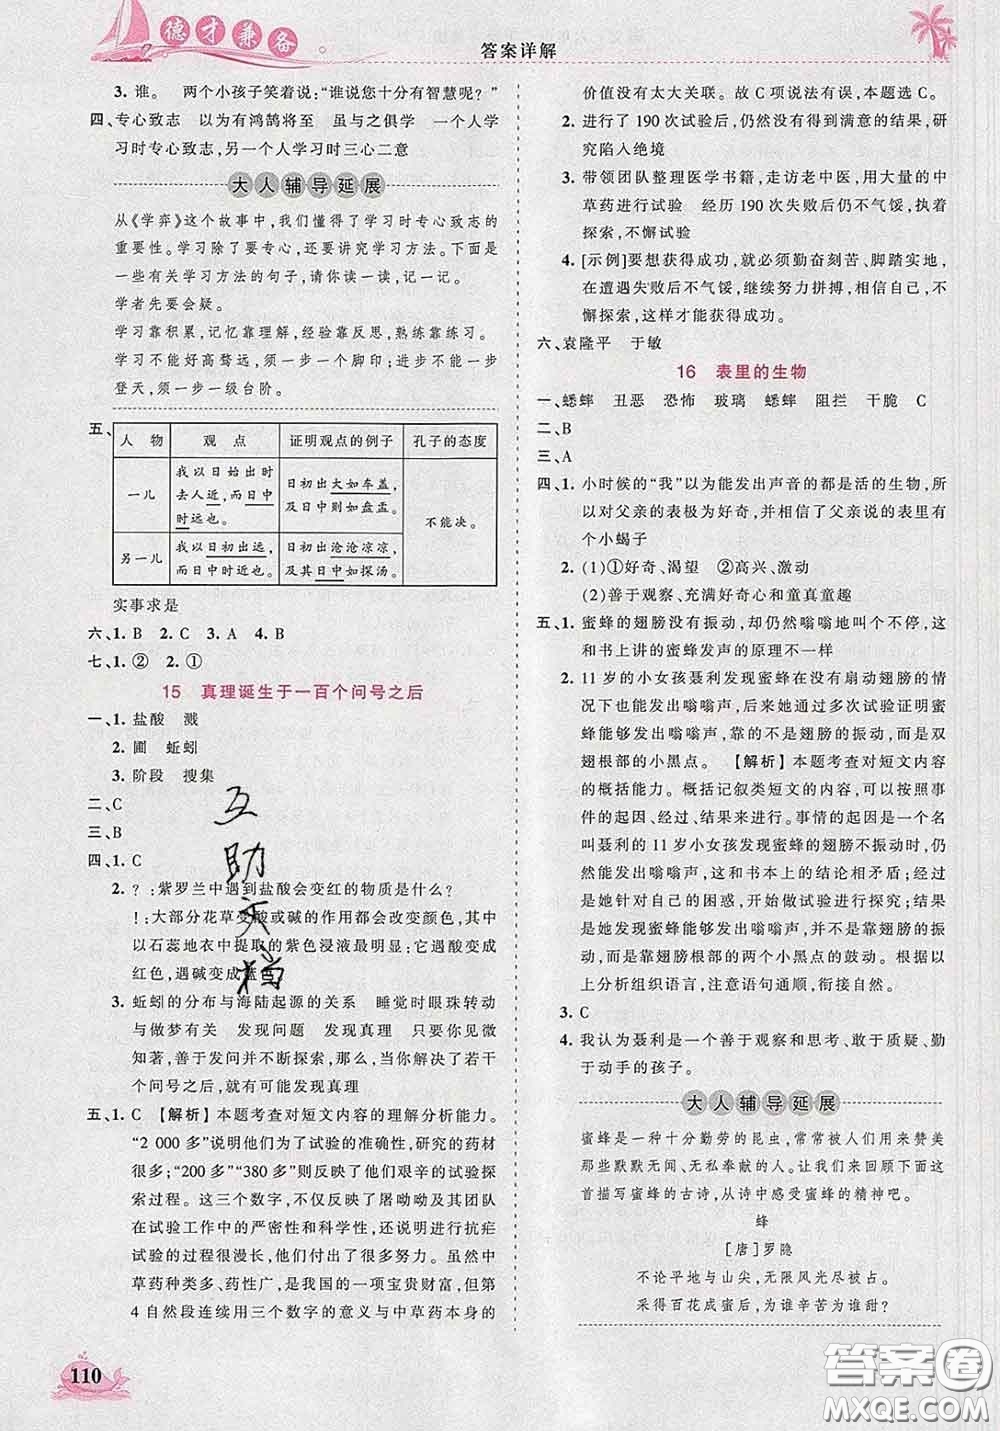 德才兼备
答案详解
3. 谁。 两个小孩子笑着说：“谁说您十分有智慧呢？”
四、专心致志 以为有鸿鹄将至 虽与之俱学 一个人学
习时专心致志，另一个人学习时三心二意
大人辅导延展
从《学弈》这个故事中，我们懂得了学习时专心致志的
重要性。学习除了要专心，还要讲究学习方法。下面是
一些有关学习方法的句子，请你读一读，记一记。
学者先要会疑。
学习靠积累，记忆靠理解，经验靠反思，熟练靠练习。
学习不能好高骛远，须一步一个脚印；进步不能一步
登天，须一步一级台阶。
五、
人 物 观 点 证明观点的例子 孔子的态度
一儿 我以日始出时去人近，而日中时远也。 日初出大如车盖，及日中则如盘盂。 不能决。
另一儿 我以日初出远，而日中时近也。 日初出沧沧凉凉，及其日中如探汤。
实事求是
六、1. B 2. C 3. A 4. B
七、1. ② 2. ①
15 真理诞生于一百个问号之后
一、1. 盐酸 溅
2. 圃 蚯蚓
3. 阶段 搜集
二、C
三、B
四、1. C
2. ？：紫罗兰中遇到盐酸会变红的物质是什么？
！：大部分花草受酸或碱的作用都会改变颜色，其中
以石蕊地衣中提取的紫色浸液最明显；它遇酸变成
红色，遇碱变成蓝色
3. 蚯蚓的分布与海陆起源的关系 睡觉时眼珠转动
与做梦有关 发现问题 发现真理 只要你见微
知著，善于发问并不断探索，那么，当你解决了若干
个问号之后，就有可能发现真理
五、1. C 【解析】本题考查对短文内容的理解分析能力。
“2 000 多”说明他们为了试验的准确性，研究的药材
很多；“200 多”“380 多”则反映了他们艰辛的试验探
索过程。这三个数字，不仅反映了屠呦呦及其团队
在试验工作中的严密性和科学性，还说明研究抗疟
试验的过程很漫长，他们付出了很多努力。虽然中
草药种类多、药性广，是我国的一项宝贵财富，但第
4 自然段连续用三个数字的意义与中草药本身的
互助文档
110
价值没有太大关联。故 C 项说法有误，本题选 C。
2. 进行了 190 次试验后，仍然没有得到满意的结果，研
究陷入绝境
3. 带领团队整理医学书籍，走访老中医，用大量的中
草药进行试验 经历 190 次失败后仍不气馁，执着
探索，不懈试验
4. [示例]要想获得成功，就必须勤奋刻苦、脚踏实地，
在遭遇失败后不气馁，继续努力拼搏，持之以恒，
不懈探索，这样才能获得成功。
六、袁隆平 于敏
16 表里的生物
一、蟋蟀 丑恶 恐怖 玻璃 蟋蟀 阻拦 干脆 C
二、B
三、A
四、1. 小时候的“我”以为能发出声音的都是活的生物，所
以对父亲的表极为好奇，并且相信了父亲说的表里有
个小蝎子
2. (1)①好奇、渴望 ②高兴、激动
(2)善于观察、充满好奇心和童真童趣
五、1. 蜜蜂的翅膀没有振动，却仍然嗡嗡地叫个不停，这
和书上讲的蜜蜂发声的原理不一样
2. 11 岁的小女孩聂利发现蜜蜂在没有扇动翅膀的情
况下也能发出嗡嗡声，后来她通过多次试验证明蜜
蜂能够发出嗡嗡声，靠的不是翅膀的振动，而是双
翅根部的小黑点。 【解析】本题考查对短文内容
的概括能力。概括记叙类短文的内容，可以按照事
件的起因、经过、结果来进行。事情的起因是一个名
叫聂利的 11 岁小女孩发现蜜蜂的翅膀不振动，却
仍然能发出嗡嗡声，这和书本上的结论矛盾；经过
是她针对自己的困惑，开始做试验进行探究；结果
是她发现蜜蜂能够发出嗡嗡声，并不是因为翅膀振
动，而是靠翅膀根部的两个小黑点的鼓动。根据以
上分析组织语言，注意语句通顺，衔接自然。
3. C
4. 我认为聂利是一个善于观察和思考、敢于质疑、勤
于动手的孩子。
大人辅导延展
蜜蜂是一种十分勤劳的昆虫，常常被人们用来赞美
那些默默无闻、无私奉献的人。让我们来读一读下面这
首描写蜜蜂的古诗，从诗中感受蜜蜂的精神吧。
蜂
[唐]罗隐
不论平地与山尖，无限风光尽被占。
采得百花成蜜后，为谁辛苦为谁甜？
答案圈
MXQE.COM